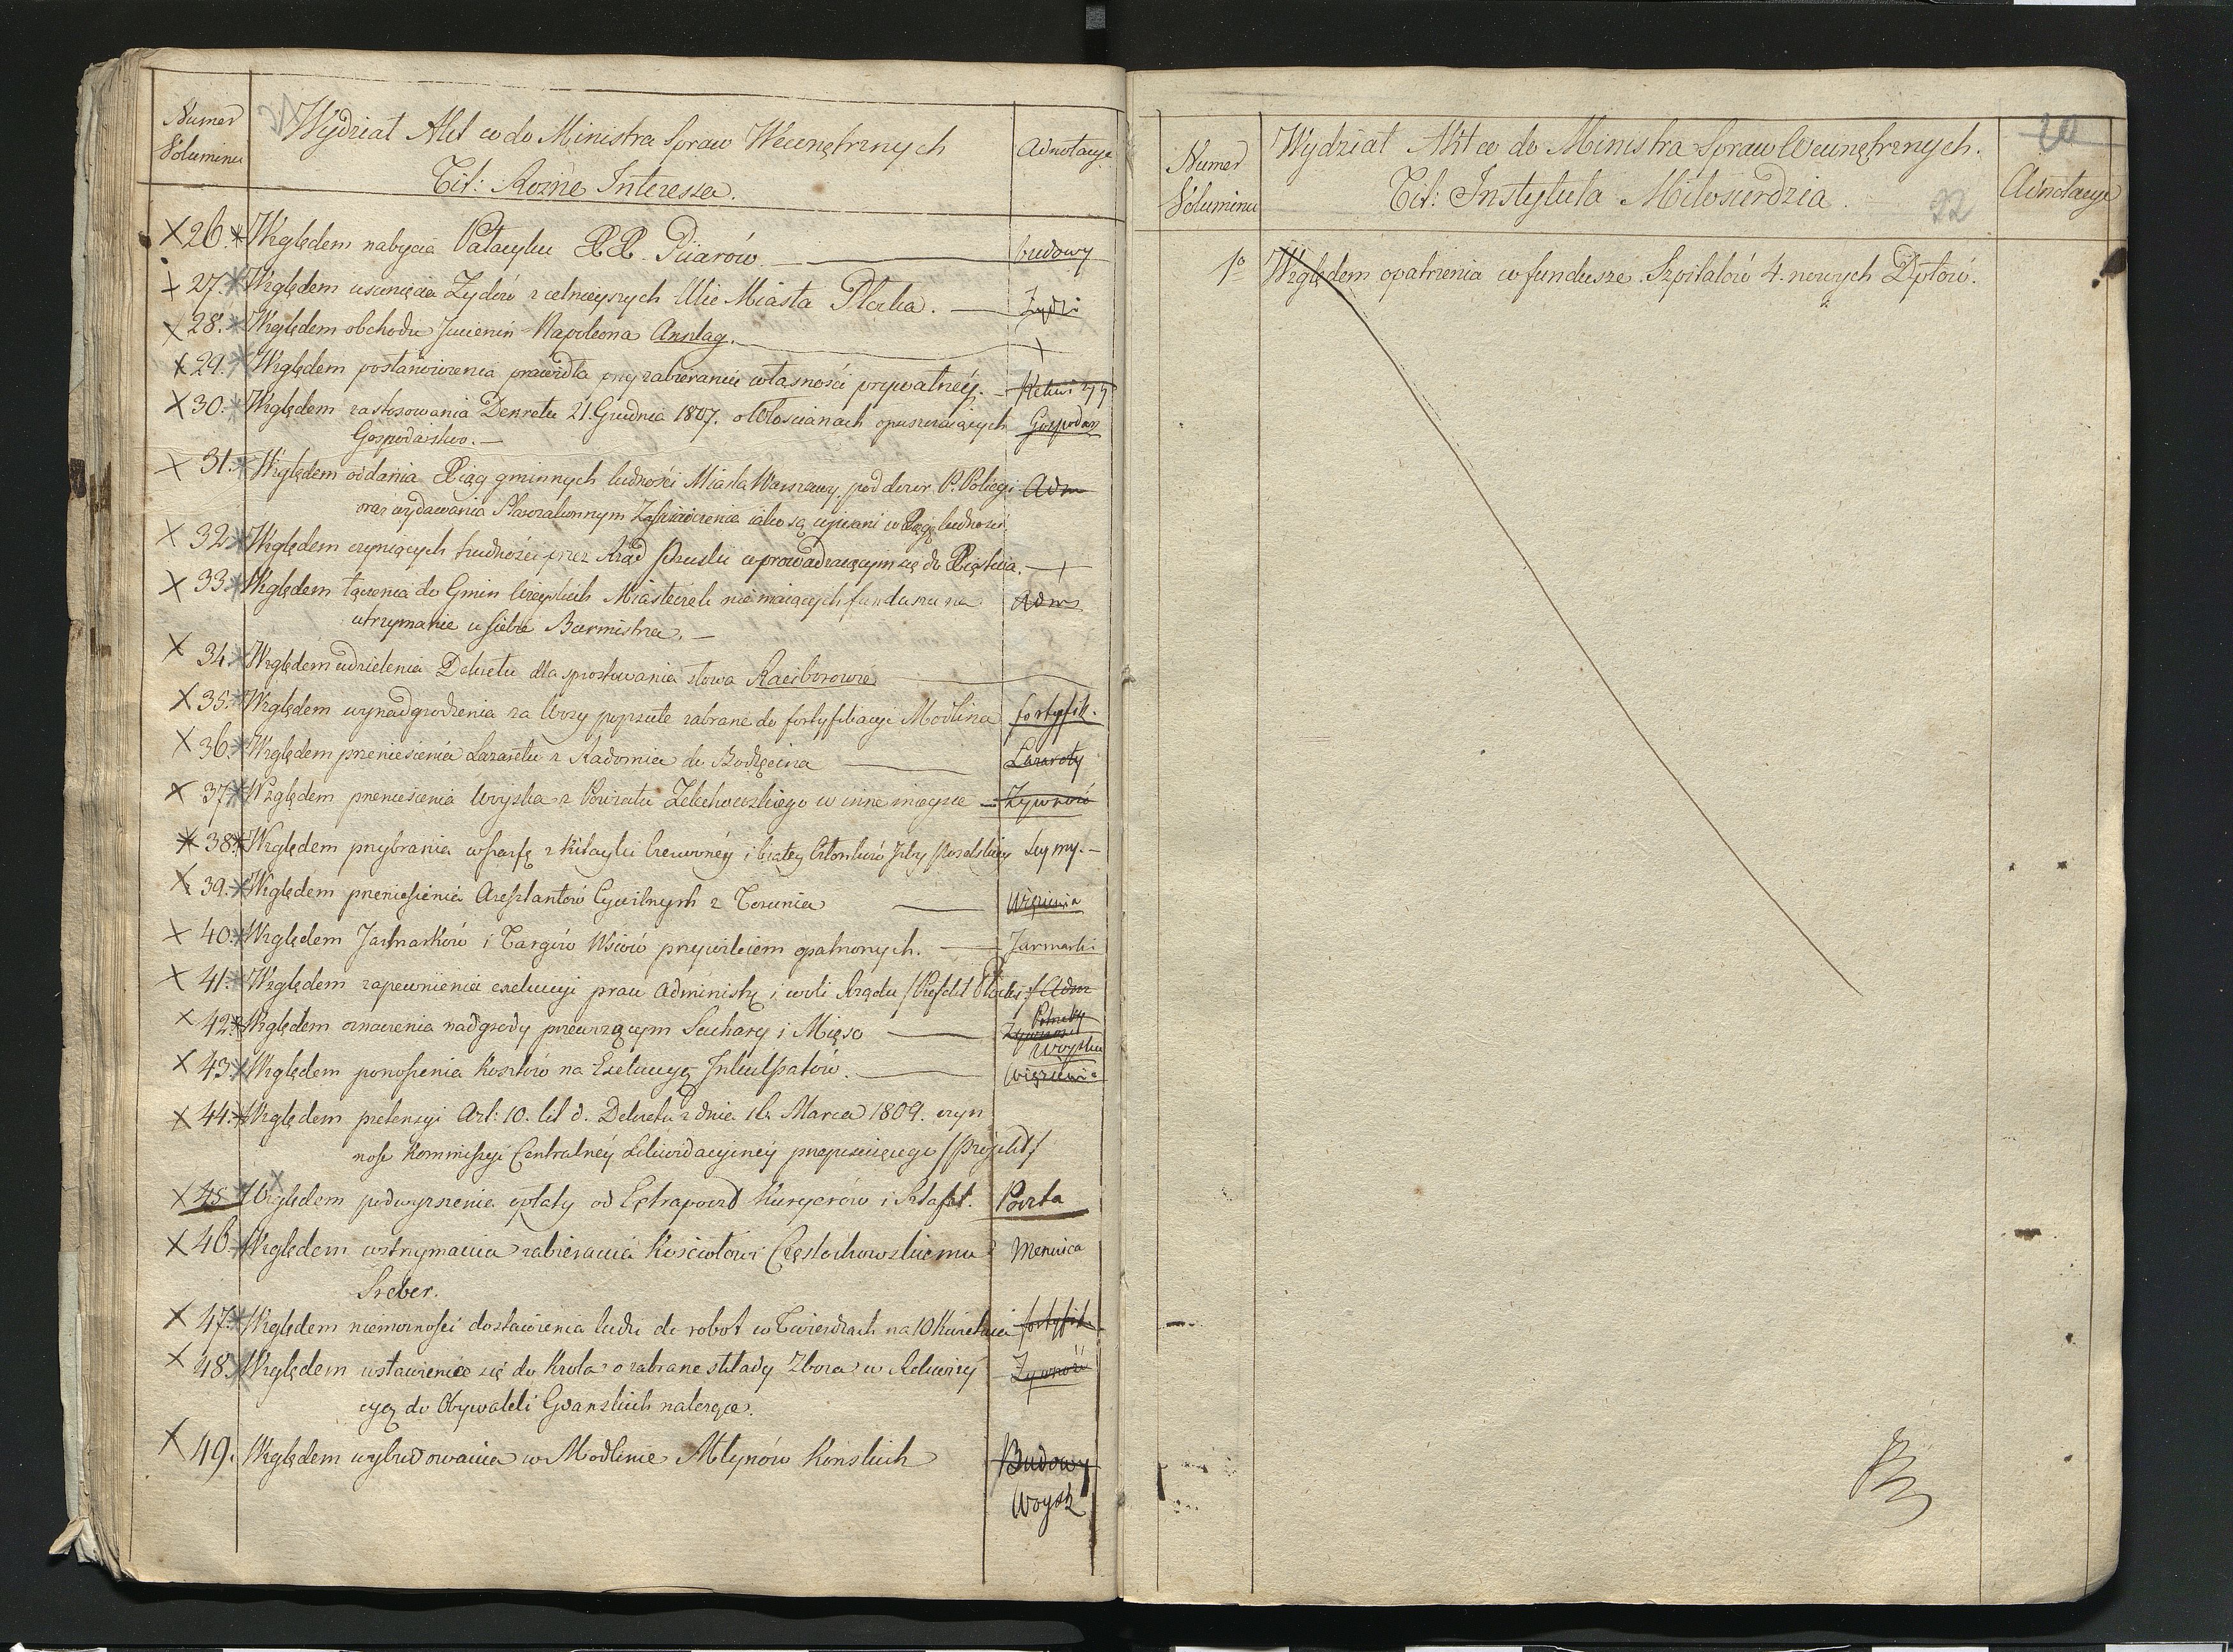 Numer
Voluminu
Wydział Akt co do Ministra Spraw Wewnętrznych
Tit: Rożne Interessa.
Adnotacye
26. Względem nabycia Pałacyku XX. Piiarów. budowy
27. Względem usunięcia Żydów z celnieyszych Ulic Miasta Płocka. Żydzi
28. Względem obchodu Imienin Napoleona
29. Względem postanowienia prawidła przy zabieraniu własności prywatney.
30. Względem zastosowania Dekretu 21. Grudnia 1807. o Włościanach opuszczaiących Gospodar
Gospodarstwo.
31. Względem oddania Xiąg gminnych ludności Miasta Warszawy pod dozór P. Policyi Adm
oraz wydawania Starozakonnym Zaświadczenia iako są wpisani w Xięgę ludności
32. Względem czyniących trudności przez Rząd Pruski wprowadzaiącym się do Xięstwa.
33. Względem łączenia do Gmin wieyskich Miasteczek nie maiących funduszu na Adm
utrzymanie u siebie Burmistrza.
34. Względem udzielenia Dekretu dla sprostowania słowa Raciborowie
35. Względem wynadgrodzenia za Wozy popsute zabrane do fortyfikacyi Modlina fortyfik.
36. Względem przeniesienia Lazaretu z Radomia do Bodzęcina Lazarety
37. Względem przeniesienia Woyska z Powiatu Żelechowskiego w inne mieysce Żywność
38. Względem przybrania w szarfę z kitayki czerwoney i białey Członków Izby Poselskiey Seymy.
39. Względem przeniesienia Aresztantów Cywilnych z Torunia Więzienia
40. Względem Jarmarków i Targów Wsiów przywileiem opatrzonych. Jarmarki
41. Względem zapewnienia exekucyi praw Administr i woli Rządu /Prefekt Płocki/ Adm
42. Względem oznaczenia nadgrody przewożącym Suchary i Mięso Żywność Potrzeby
Woyska
43. Względem ponoszenia Kosztów na Exekucyę Inkulpatów. Więzienia
44. Względem pretensyi Art: 10. lit d. Dekretu z dnia 16. Marca 1809. czyn
ność Kommissyi Centralney Likwidacyiney przepisuiącego /Projekt/
45. Względem podwyższenia opłaty od Extrapoczt Kuryerów i Sztafet. Poczta
46. Względem wstrzymania zabierania Kościołowi Częstochowskiemu Mennica
Sreber.
47. Względem niemożności dostawienia ludzi do robot w Twierdzach na 10 Kwietnia fortyfik
48. Względem wstawienia się do Krola o zabrane składy Zboża w Rekwizy Żywność
cyę do Obywateli Gdanskich należące.
49. Względem wybudowania w Modlinie Młynów Konskich Budowy
Woysk
20
Numer
Voluminu
Wydział Akt co do Ministra Spraw Wewnętrznych.
Tit: Instytuta Miłosierdzia.
22
Adnotacye
1o Względem opatrzenia w fundusze Szpitalów 4. nowych Dptów.